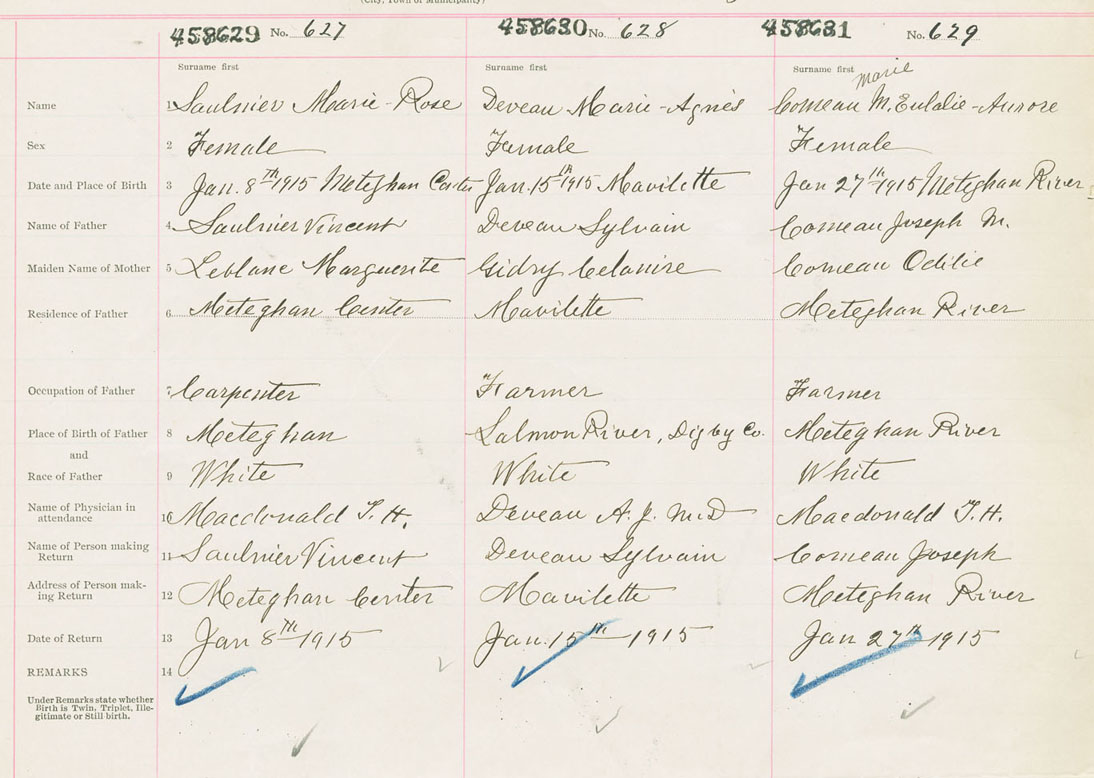 (City, Town or Municipality)
458629 No. 627 458630 No. 628 458631 No. 629
Surname first Surname first Surname first
Marie
Name 1 Saulnier Marie-Rose Deveau Marie-Agnès Comeau M. Eulalie-Aurore
Sex 2 Female Female Female
Date and Place of Birth 3 Jan. 8TH 1915 Meteghan Center Jan. 15th 1915 Mavilette Jan 27th 1915 Meteghan River
Name of Father 4 Saulnier Vincent Deveau Sylvain Comeau Joseph M.
Maiden Name of Mother 5 Leblanc Marguerite Gidry Celanise Comeau Odilie
Residence of Father 6 Meteghan Center Mavilette Meteghan River
Occupation of Father 7 Carpenter Farmer Farmer
Place of Birth of Father 8 Meteghan Salmon River, Digby Co. Meteghan River
and
Race of Father 9 White White White
Name of Physician in
attendance 10 Macdonald T. H. Deveau A. J. M.D Macdonald T. H.
Name of Person making
Return 11 Saulnier Vincent Deveau Sylvain Comeau Joseph
Address of Person mak-
ing Return 12 Meteghan Center Mavilette Meteghan River
Date of Return 13 Jan 8TH 1915 Jan. 15th 1915 Jan 27th 1915
REMARKS 14
Under Remarks state whether
Birth is Twin, Triplet, Ille-
gitimate or Still birth.